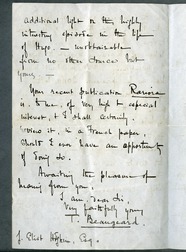 additional light on this highly
interesting episode in the life
of Hugo — unobtainable
from no other source but
yours. —
Your recent publication Rariora
is, to me, of very high & especial
interest, & I shall certainly
review it, in a French paper,
should I ever have an opportunity
of doing so.
Awaiting the pleasure of
hearing from you,
I am, dear Sir,
Very faithfully yours
T. Beaugeard.
J. Eliot Hodgkin, Esq.